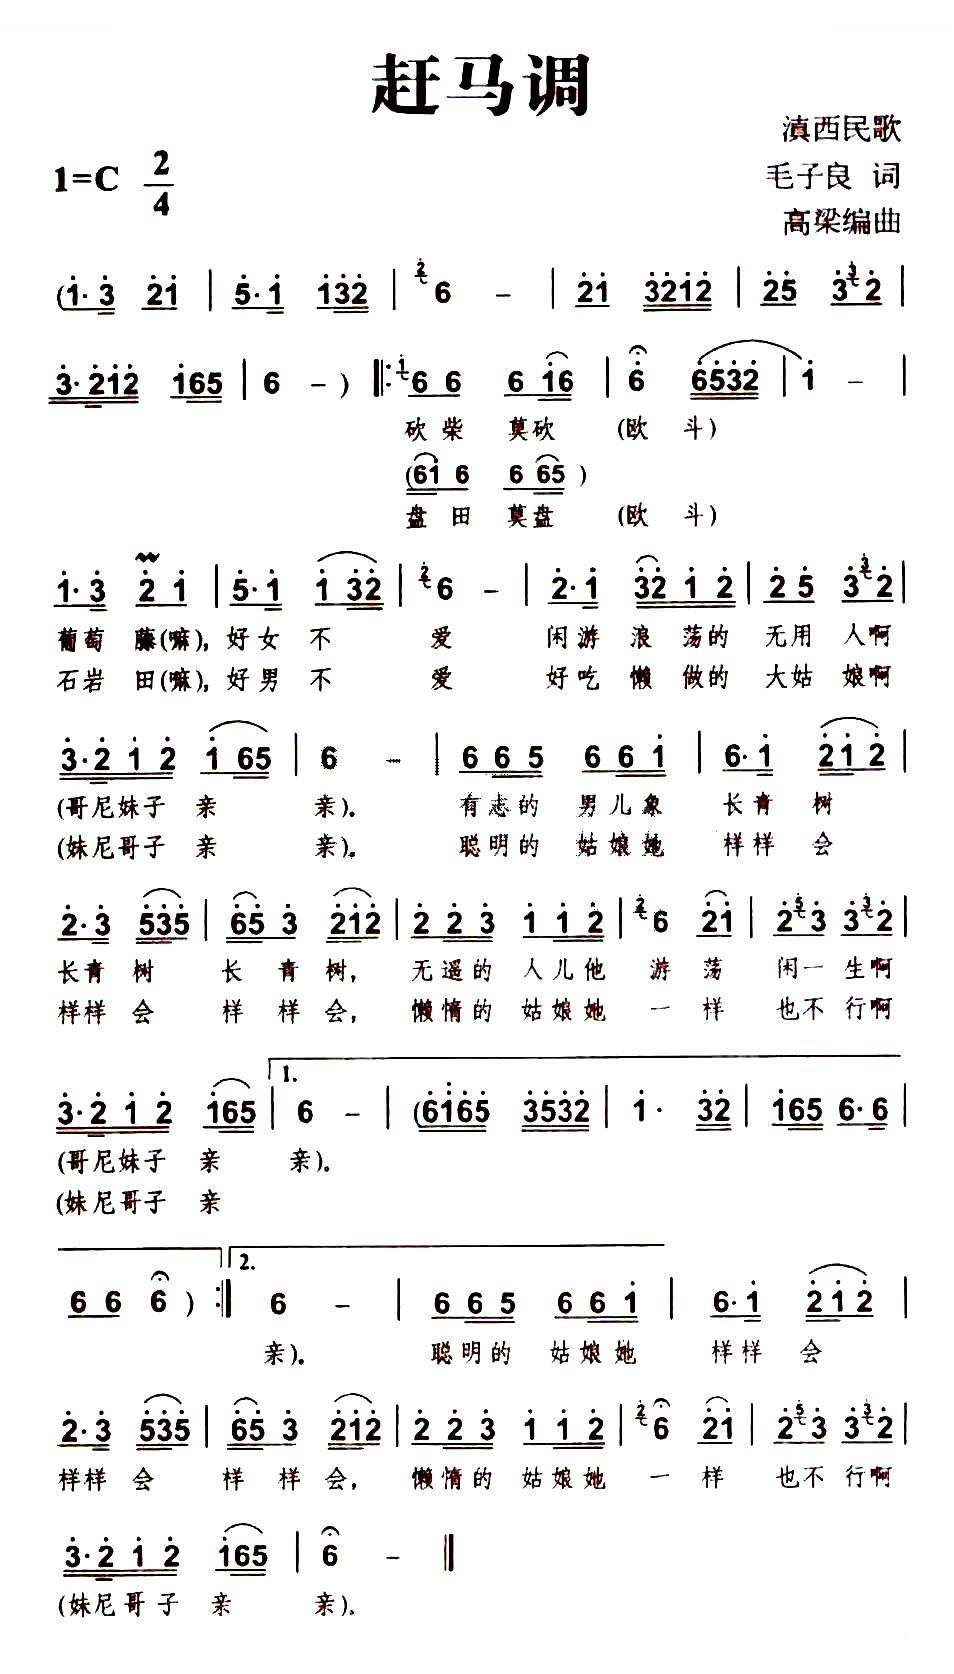 赶马调
滇西民歌
1=C 2/4
毛子良 词
高梁编曲
(1·3 21 | 5·1 132 | 2 6 - | 21 3212 | 25 3 3 2 |
3·212 165 | 6 - ) ‖: 1 6 6 6 16 | 6 6532 | 1 - |
砍柴 莫砍 (欧 斗)
(61 6 6 65 )
盘田 莫盘 (欧 斗)
1·3 2 1 | 5·1 1 32 | 2 6 - | 2·1 32 1 2 | 2 5 3 3 2 |
葡萄 藤(嘛), 好女 不 爱 闲游 浪 荡的 无用 人啊
石岩 田(嘛), 好男 不 爱 好吃 懒 做的 大姑 娘啊
3·2 1 2 1 65 | 6 - | 6 6 5 6 6 1 | 6·1 21 2 |
(哥尼妹子 亲 亲)。 有志的 男儿象 长青 树
(妹尼哥子 亲 亲)。 聪明的 姑娘她 样样 会
2·3 535 | 65 3 212 | 2 2 3 1 1 2 | 2 6 21 | 2 5 3 3 3 2 |
长青 树 长 青 树, 无遥的 人儿他 游 荡 闲一 生啊
样样 会 样 样 会, 懒惰的 姑娘她 一 样 也不 行啊
1.
3·2 1 2 165 | 6 - | (6165 3532 | 1· 32 | 165 6·6 |
(哥尼妹子 亲 亲)。
(妹尼哥子 亲
2.
6 6 6 ) :‖ 6 - | 6 6 5 6 6 1 | 6·1 21 2 |
亲)。 聪明的 姑娘她 样样 会
2·3 535 | 65 3 212 | 2 2 3 1 1 2 | 2 6 21 | 2 5 3 3 3 2 |
样样 会 样 样 会, 懒惰的 姑娘她 一 样 也不 行啊
3·2 1 2 165 | 6 - ‖
(妹尼哥子 亲 亲)。